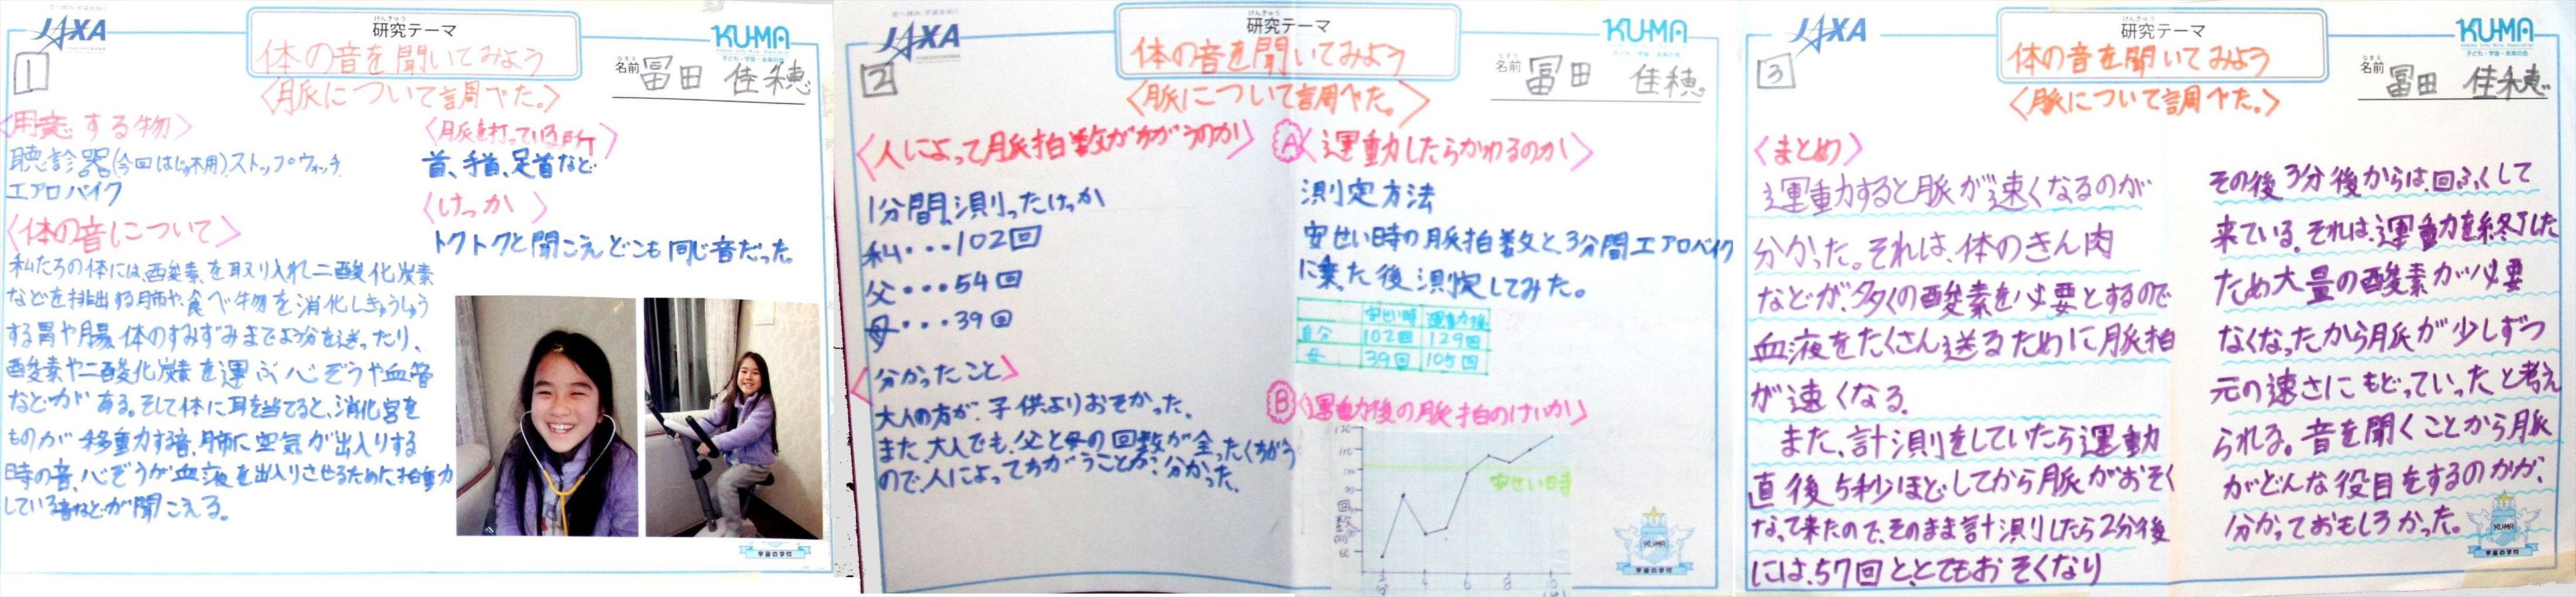 JAXA
けんきゅう
研究テーマ
KU-MA
子ども・宇宙・未来の会
1
体の音を聞いてみよう
なまえ
名前 冨田 佳穂
〈脈について調べた。〉
〈用意する物〉
聴診器(今回はじゅ用)、ストップウォッチ、
エアロバイク
〈体の音について〉
私たちの体には、酸素を取り入れ二酸化炭素
などを排出する肺や、食べ物を消化しきゅうしゅう
する胃や腸、体のすみずみまでよう分を送ったり、
酸素や二酸化炭素を運ぶ心ぞうや血管
などがある。そして体に耳を当てると、消化官を
ものが移動する音、肺に空気が出入りする
時の音、心ぞうが血液を出入りさせるために拍動
している音などが聞こえる。
〈脈を打っている所〉
首、手首、足首など
〈けっか〉
トクトクと聞こえ、どこも同じ音だった。
宇宙の学校
JAXA
けんきゅう
研究テーマ
KU-MA
子ども・宇宙・未来の会
2
体の音を聞いてみよう
なまえ
名前 冨田 佳穂
〈脈について調べた。〉
〈人によって脈拍数がちがうのか〉
1分間、測ったけっか
私・・・102回
父・・・54回
母・・・39回
〈分かったこと〉
大人の方が、子供よりおそかった、
また、大人でも、父と母の回数が全ったくちがう
ので、人によってちがうことが、分かった。
A 〈運動したらかわるのか〉
測定方法
安せい時の脈拍数と、3分間エアロバイク
に乗た後、測定してみた。
安せい時 運動後
自分 102回 129回
母 39回 105回
B 〈運動後の脈拍のけいか〉
120
110
100
90
安せい時
回数(回)
60
2分 4 6 8 10
KU-MA
宇宙の学校
JAXA
けんきゅう
研究テーマ
KU-MA
子ども・宇宙・未来の会
3
体の音を聞いてみよう
なまえ
名前 冨田 佳穂
〈脈について調べた。〉
〈まとめ〉
運動すると脈が速くなるのが
分かった。それは、体のきん肉
などが、多くの酸素を必要とするので
血液をたくさん送るために脈拍
が速くなる。
また、計測をしていたら運動
直後5秒ほどしてから脈がおそく
なって来たので、そのまま計測したら2分後
には、57回と、とてもおそくなり
その後3分後からは、回ふくして
来ている。それは、運動を終了した
ため大量の酸素が必要
なくなったから脈が少しずつ
元の速さにもどっていったと考え
られる。音を聞くことから脈
がどんな役目をするのかが、
分かっておもしろかった。
KU-MA
宇宙の学校